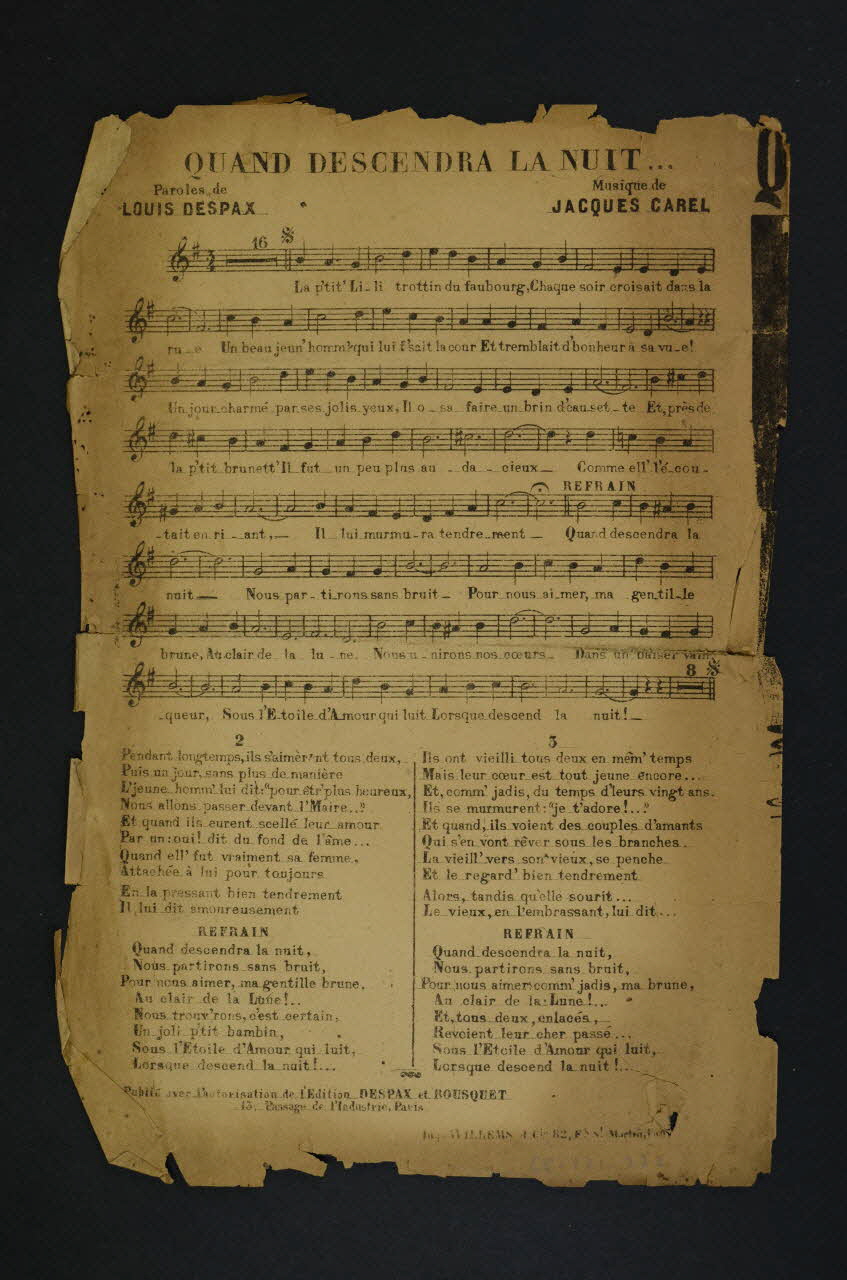 QUAND DESCENDRA LA NUIT...
Paroles de
LOUIS DESPAX
Musique de
JACQUES CAREL
Q
16
La p'tit' Li-li trottin du faubourg, Chaque soir croisait dans la
ru-e Un beau jeun' homm' qui lui f'sait la cour Et tremblait d'bonheur à sa vu-e!
Un jour charmé par ses jolis yeux, Il o-sa faire un brin d'cau-set-te Et, près de
la p'tit brunett' Il fut un peu plus au-da-cieux Comme ell' l'é-cou-
REFRAIN
-tait en ri-ant, Il lui murmu-ra tendre-ment Quand descendra la
nuit Nous par-ti-rons sans bruit Pour nous ai-mer, ma gen-til-le
brune, Au clair de la lu-ne. Nous u-nirons nos cœurs Dans un baiser vain-
8
-queur, Sous l'Etoile d'Amour qui luit Lorsque descend la nuit!
2
Pendant longtemps, ils s'aimèr'nt tous deux,
Puis un jour, sans plus de manière
L'jeune homm' lui dit: "pour êtr' plus heureux,
Nous allons passer devant l'Maire..."
Et quand ils eurent scellé leur amour
Par un: oui! dit du fond de l'âme...
Quand ell' fut vraiment sa femme,
Attachée à lui pour toujours
En la pressant bien tendrement
Il lui dit amoureusement
REFRAIN
Quand descendra la nuit,
Nous partirons sans bruit,
Pour nous aimer, ma gentille brune,
Au clair de la Lune!..
Nous trouv'rons, c'est certain,
Un joli p'tit bambin,
Sous l'Etoile d'Amour qui luit,
Lorsque descend la nuit!...
3
Ils ont vieilli tous deux en mêm' temps
Mais leur cœur est tout jeune encore...
Et, comm' jadis, du temps d'leurs vingt ans.
Ils se murmurent: "je t'adore!..."
Et quand, ils voient des couples d'amants
Qui s'en vont rêver sous les branches.
La vieill' vers son vieux, se penche
Et le regard' bien tendrement
Alors, tandis qu'elle sourit...
Le vieux, en l'embrassant, lui dit...
REFRAIN
Quand descendra la nuit,
Nous partirons sans bruit,
Pour nous aimer comm' jadis, ma brune,
Au clair de la Lune!...
Et, tous deux, enlacés,
Revoient leur cher passé...
Sous l'Etoile d'Amour qui luit,
Lorsque descend la nuit!...
Publié avec l'autorisation de l'Edition DESPAX et BOUSQUET
43, Passage de l'Industrie, Paris
Imp. WILLEMS et Cie 82, Fg St Martin, Paris